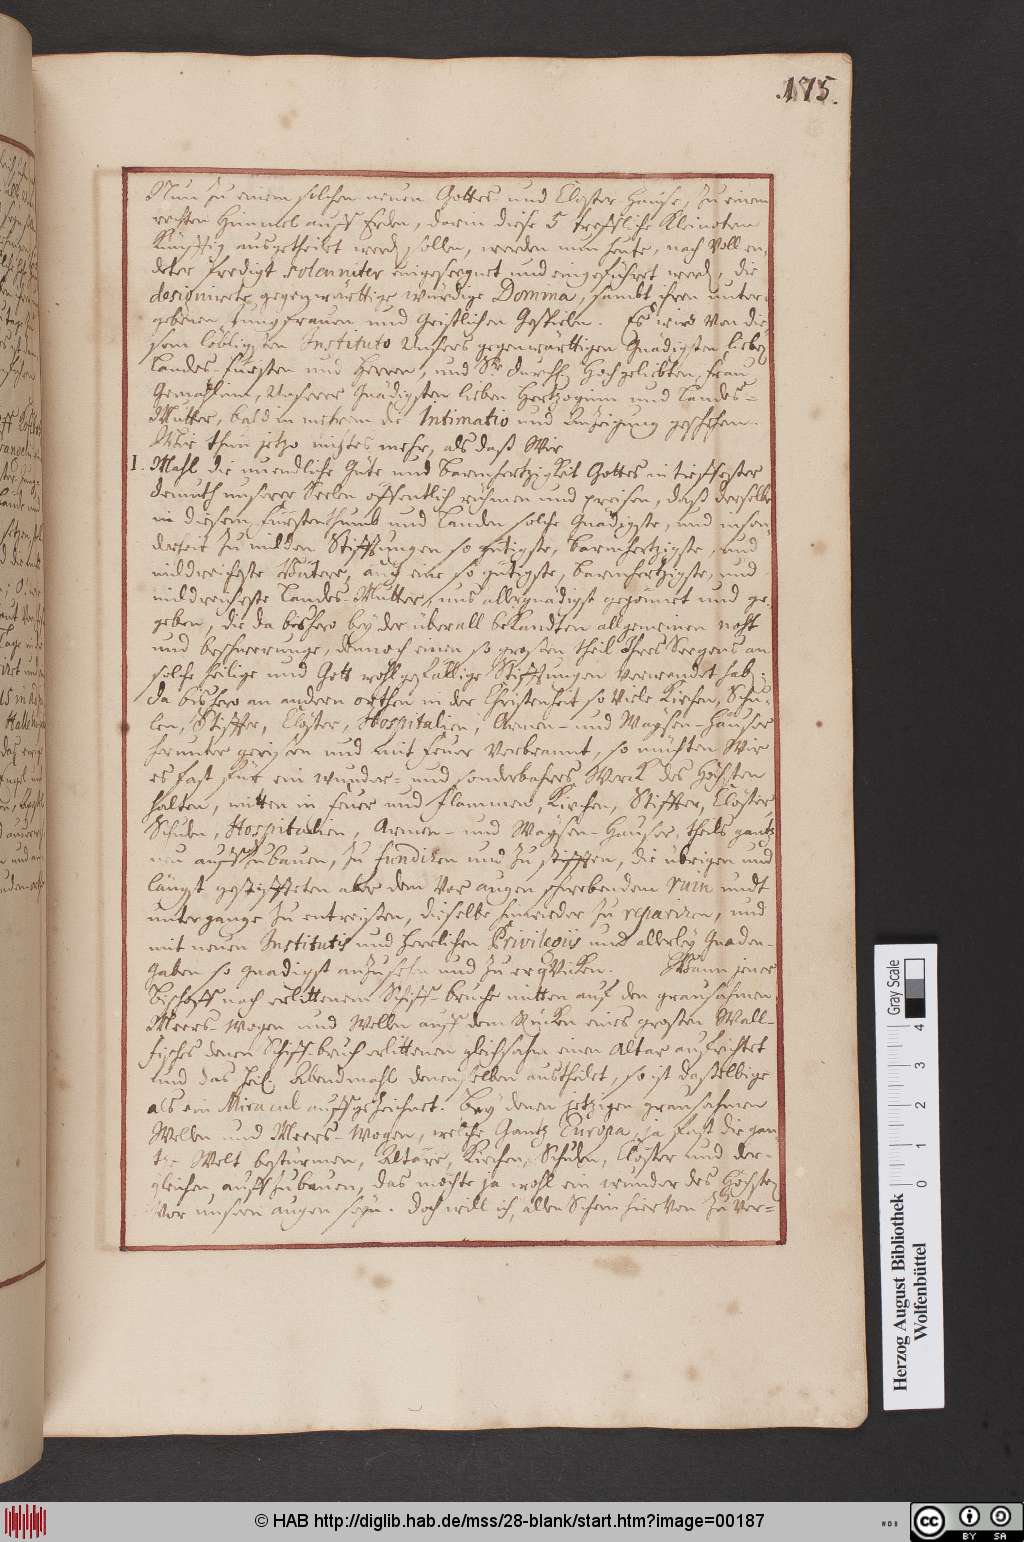 .175.
Nun zu einem solchen neuen Gottes- und Closter-Hause, zu einem
rechten Himmel auff Erden, darin diese 5 treffliche Kleinoten
Künfftig ausgetheilet werden sollen, werden nun heute, nach vollen-
deter Predigt solenniter eingesegnet und eingeführet werden, die
designirete gegenwärttige würdige Domina, sambt ihren unter-
gebenen Jungfrauen und Geistlichen Gespielen. Es wird von die-
sem löblichsten Instituto Unsers gegenwärttigen Gnädigsten lieben
Landes-Fürsten und Herren, und Sr. Durchl. Hochgeliebten Frau
Gemahlinn, Unserer Gnädigsten lieben Hertzoginn und Landes-
Mutter, bald in mehrem die Intimatio und Anzeigung geschehen.
Wir thun jetzo nichtes mehr, als daß Wir
1. die unendliche Güte und Barmhertzigkeit Gottes in tieffester
demuth unserer Seelen öffentlich rühmen und preisen, daß derselbe
in diesem Fürstenthumb und Landen solche Gnädigste, und inson-
derheit zu milden Stifftungen so gütigste, barmhertzigste, und
mildreicheste Vätere, auch eine so gütigste, barmhertzigste, und
mildreicheste Landes-Mutter, uns allergnädigst gegönnet und ge-
geben, die da bishero bey der überall bekandten allgemeinen noht
und beschwerunge, dennoch einen so grossen theil Ihres Seegens an
solche heilige und Gott wohlgefällige Stifftungen verwendet haben.
da bishero an andern orthen in der Christenheit so viele Kirchen, Schu-
len, Stiffter, Clöster, Hospitalien, Armen- und Waysen-Häuser
herunter gerissen und mit Feuer verbrannt, so müchten Wir
es fast für ein wunder- und sonderbahres Werck des Höchsten
halten, mitten in Feuer und Flammen, Kirchen, Stiffter, Clöster,
Schulen, Hospitalien, Armen- und Waysen-Häuser, theils gantz
neu auffzubauen, zu fundiren und zu stifften, die übrigen und
längst gestiffteten aber dem vor augen schwebendem ruin undt
untergange zu entreissen, dieselbe hinwieder zu repariren, und
mit neuen Institutis und herrlichen Privilegiis und allerley Gnaden-
Gaben so gnädigst anzusehen und zu erqvicken. Wann jener
Bischoff nach erlittenem Schiff-bruche mitten auf den grausahmen
Meers-Wogen und Wellen auff dem Rücken eines grossen Wall-
fisches denen Schiff-bruch erlittenen gleichsahm einen Altar auffrichtet
und das heil. Abendmahl denenselben austheilet, so ist dasselbige
als ein Miracul auffgezeichnet. Bey denen jetzigen grausahmen
Wellen und Meers-Wogen, welche Gantz Europa, ja fast die gan-
tze Welt bestürmen, Altäre, Kirchen, Schulen, Clöster und der-
gleichen auffzubauen, das möchte ja wohl ein wunder des Höchsten
vor unsern augen seyn. Doch will ich, allen Schein hiervon zu ver-
Herzog August Bibliothek
Wolfenbüttel
Gray Scale
0 1 2 3 4
© HAB http://diglib.hab.de/mss/28-blank/start.htm?image=00187
WDB
cc BY SA